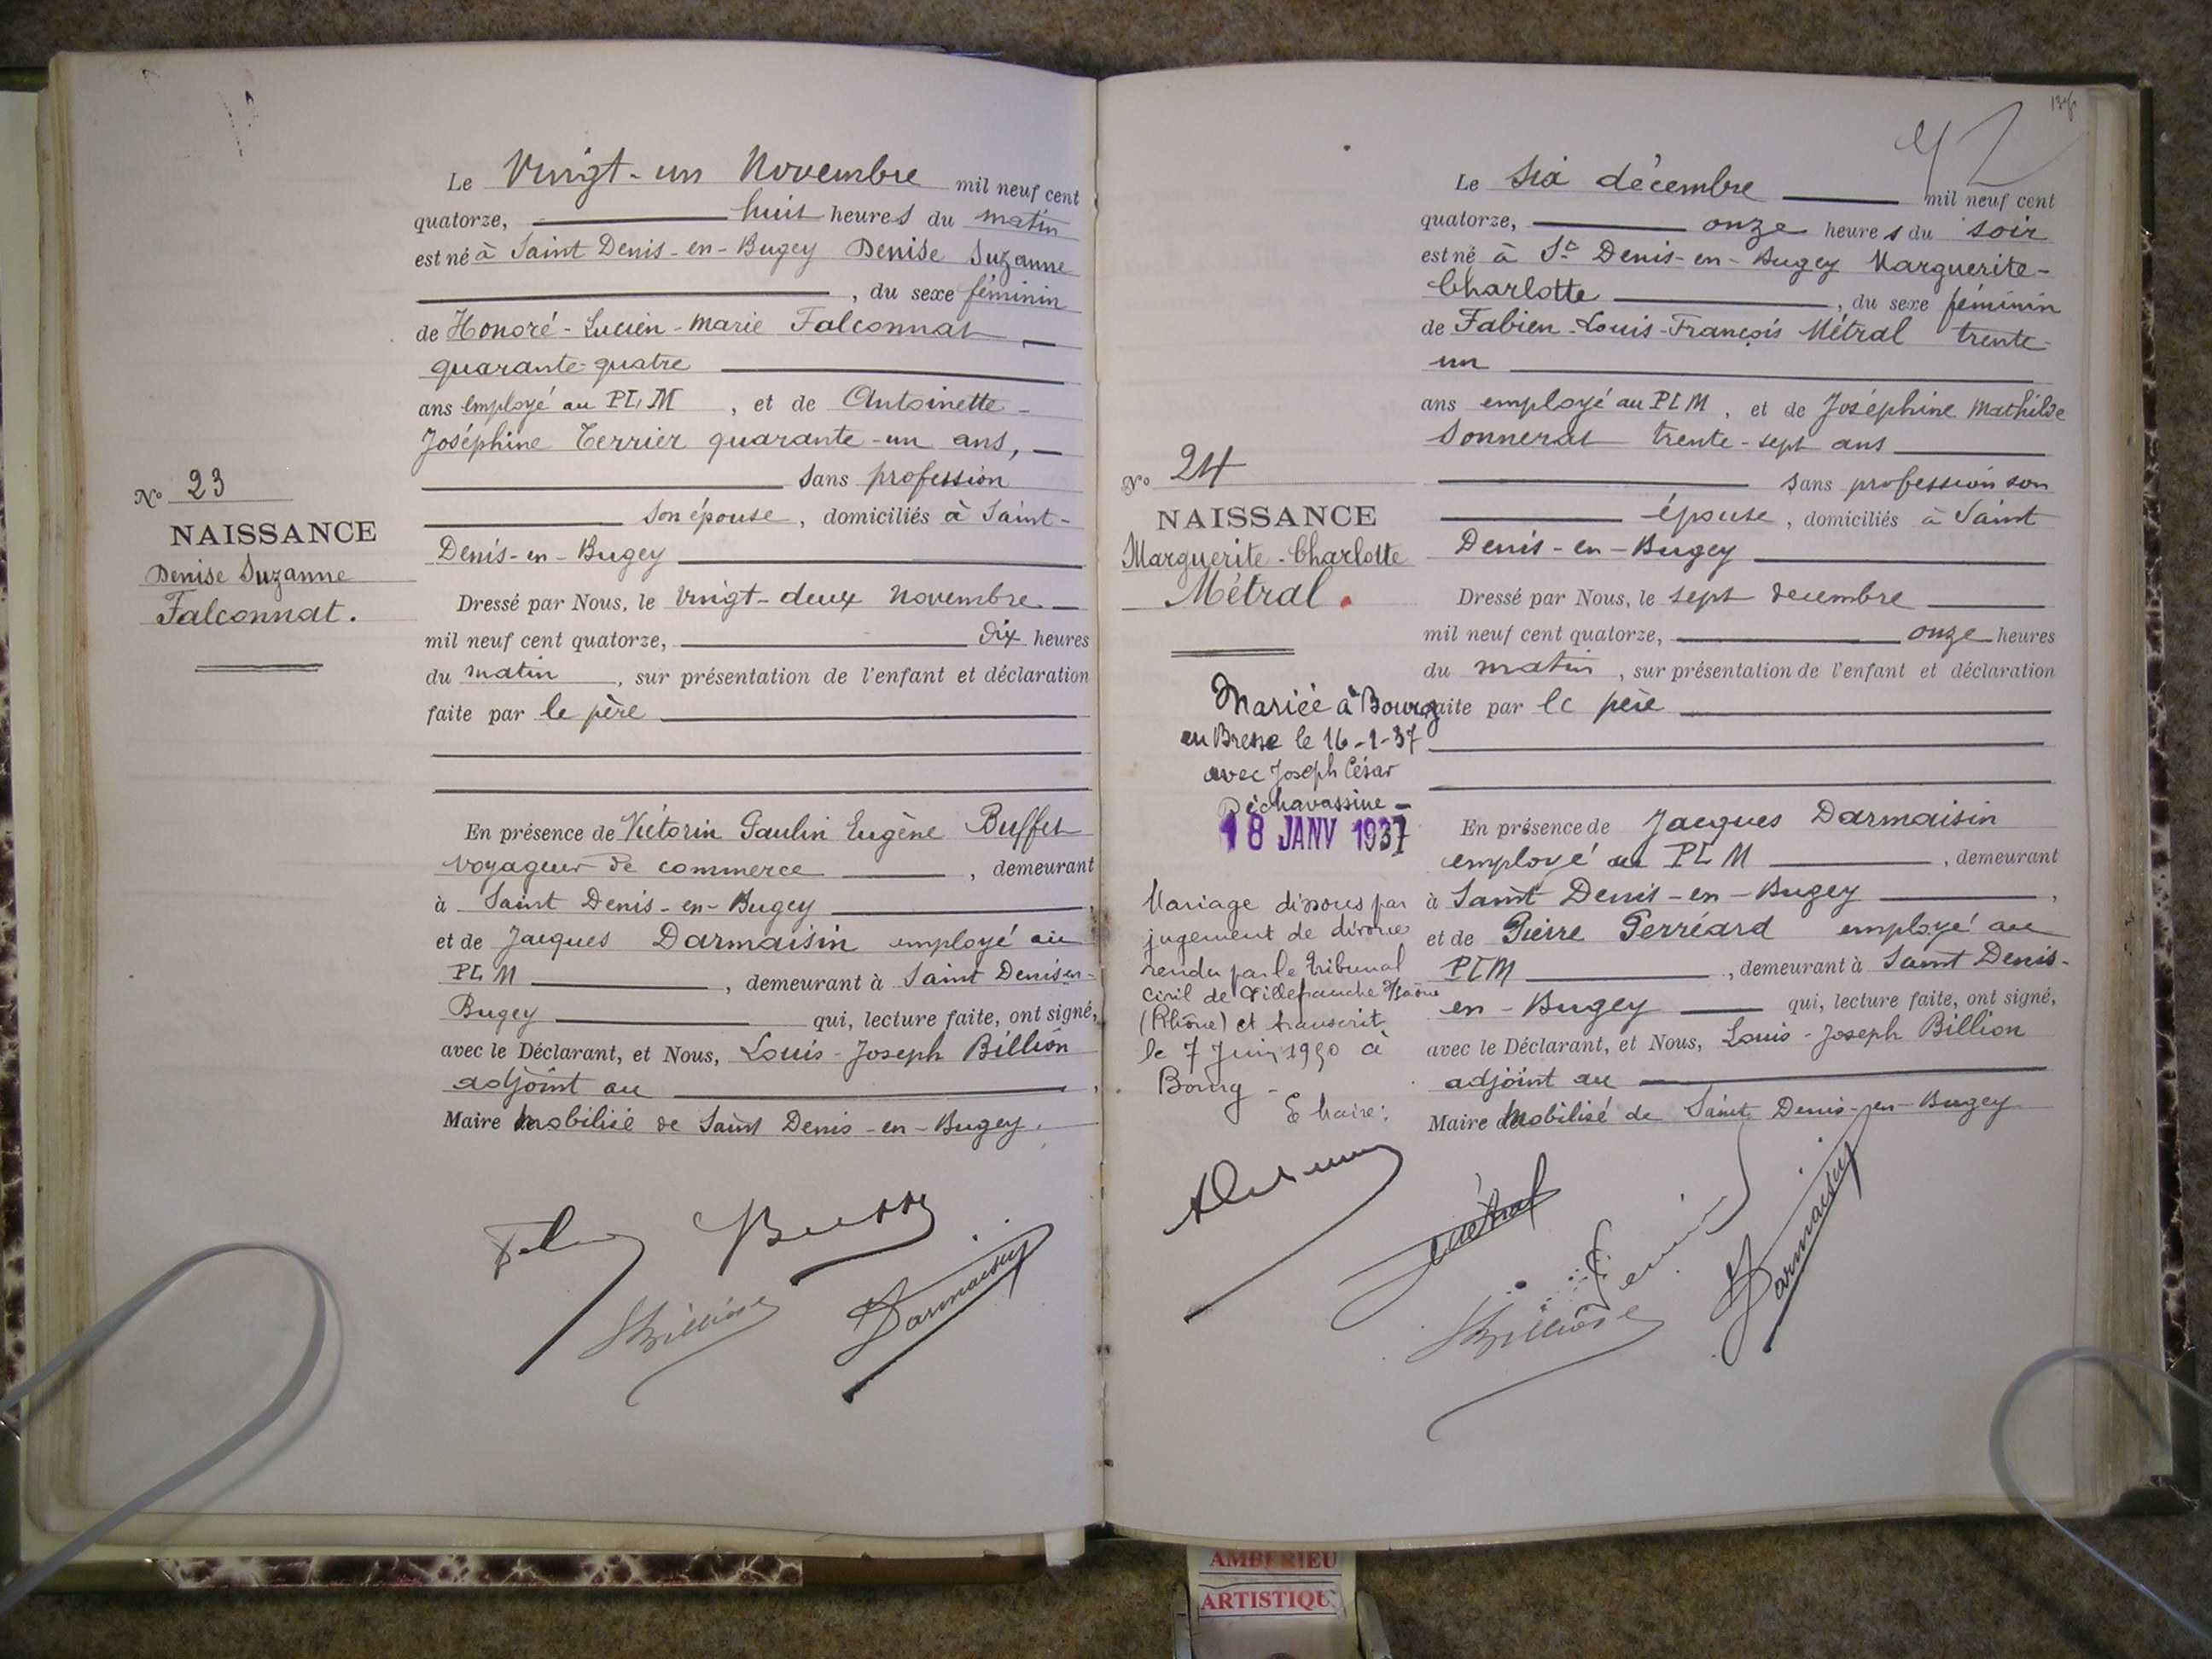 Le Vingt-un Novembre mil neuf cent
quatorze, huit heures du matin
est né à Saint Denis-en-Bugey Denise Suzanne
, du sexe féminin
de Honoré-Lucien-Marie Falconnat
quarante-quatre
ans employé au PLM, et de Antoinette-
Joséphine Terrier quarante-un ans,
sans profession
son épouse, domiciliés à Saint-
Denis-en-Bugey
Dressé par Nous, le vingt-deux Novembre
mil neuf cent quatorze, dix heures
du matin, sur présentation de l'enfant et déclaration
faite par le père
En présence de Victorin Paulin Eugène Buffet
voyageur de commerce, demeurant
à Saint Denis-en-Bugey,
et de Jacques Darmaisin employé au
PLM, demeurant à Saint Denis en-
Bugey qui, lecture faite, ont signé,
avec le Déclarant, et Nous, Louis-Joseph Billion
adjoint au
Maire mobilisé de Saint Denis-en-Bugey.
No 23
NAISSANCE
Denise Suzanne
Falconnat.
Billion
Darmaisin
42
Le six décembre mil neuf cent
quatorze, onze heures du soir
est né à St Denis-en-Bugey Marguerite-
Charlotte, du sexe féminin
de Fabien-Louis-François Métral trente-
un
ans employé au PLM, et de Joséphine Mathilde
Sonnerat trente-sept ans
sans profession son
épouse, domiciliés à Saint
Denis-en-Bugey
Dressé par Nous, le sept decembre
mil neuf cent quatorze, onze heures
du matin, sur présentation de l'enfant et déclaration
faite par le père
En présence de Jacques Darmaisin
employé au PLM, demeurant
à Saint Denis-en-Bugey,
et de Pierre Perréard employé au
PLM, demeurant à Saint Denis-
en-Bugey qui, lecture faite, ont signé,
avec le Déclarant, et Nous, Louis-Joseph Billion
adjoint au
Maire de mobilisé de Saint Denis-en-Bugey
No 24
NAISSANCE
Marguerite-Charlotte
Métral.
Mariée à Bourg
en Bresse le 16-1-37
avec Joseph César
Péchavassine-
18 JANV 1937
Mariage dissous par
jugement de divorce
rendu par le tribunal
civil de Villefranche s/Saône
(Rhône) et transcrit
le 7 Juin 1950 à
Bourg-
Le Maire:
Métral
Billion
Darmaisin
AMBERIEU
ARTISTIQU